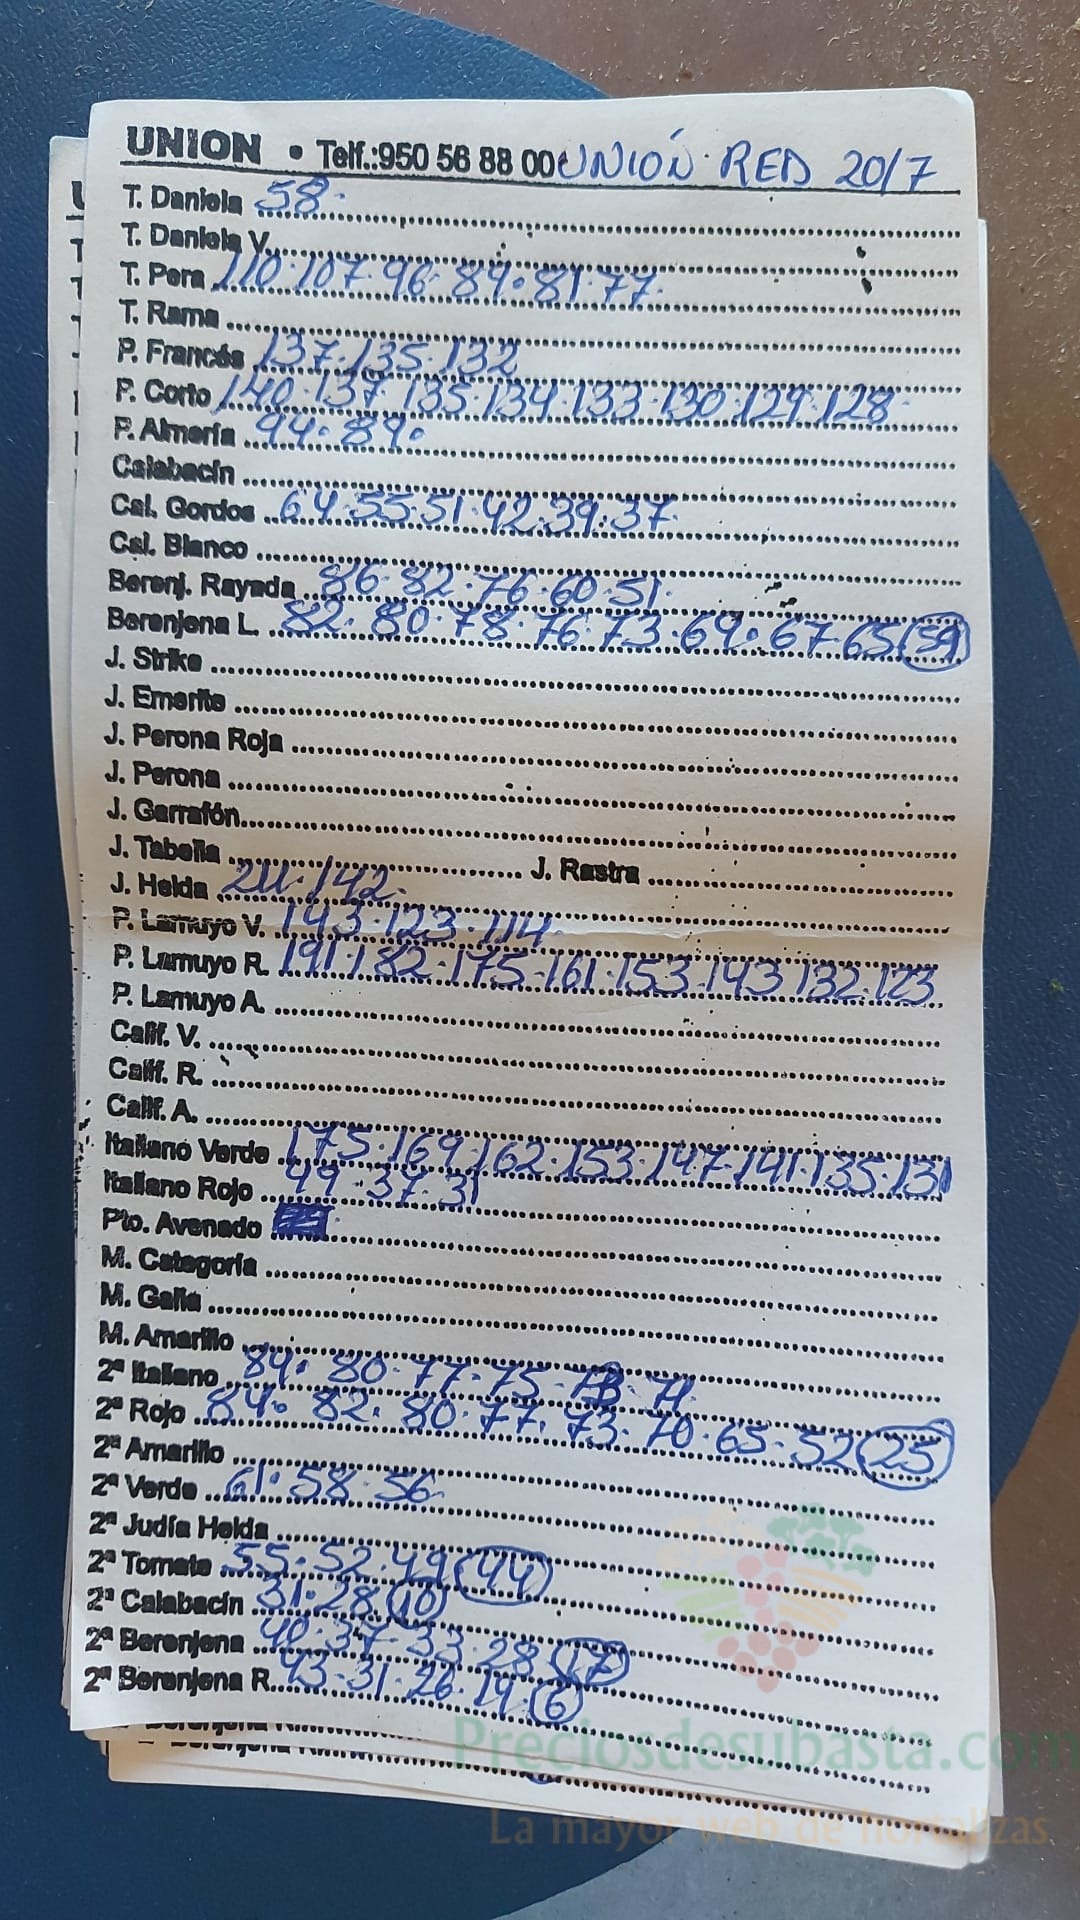 UNION • Telf.:950 56 88 00 UNIÓN RED 20/7
T. Daniela 58.
T. Daniela V.
T. Pera 110.107.96.89.81.77.
T. Rama
P. Francés 137.135.132
P. Corto 140.137.135.134.133.130.129.128.
P. Almería 94.89.
Calabacín
Cal. Gordos 64.55.51.42.39.37.
Cal. Blanco
Berenj. Rayada 86.82.76.60.51.
Berenjena L. 82.80.78.76.73.69.67.65 (59)
J. Strike
J. Emerite
J. Perona Roja
J. Perona
J. Garrafón
J. Tabella J. Rastra
J. Helda 211.142.
P. Lamuyo V. 143.123.114.
P. Lamuyo R. 191.182.175.161.153.143.132.123
P. Lamuyo A.
Calif. V.
Calif. R.
Calif. A.
Italiano Verde 175.169.162.153.147.141.135.131
Italiano Rojo 49.37.31
Pto. Avenado
M. Categoría
M. Galia
M. Amarillo
2ª Italiano 84.80.77.75.73.71.
2ª Rojo 84.82.80.77.73.70.65.52 (25)
2ª Amarillo
2ª Verde 61.58.56.
2ª Judía Helda
2ª Tomate 55.52.49 (44)
2ª Calabacín 31.28 (10)
2ª Berenjena 40.37.33.28 (17)
2ª Berenjena R. 43.31.26.19. (6)
Preciosdesubasta.com
La mayor web de hortalizas